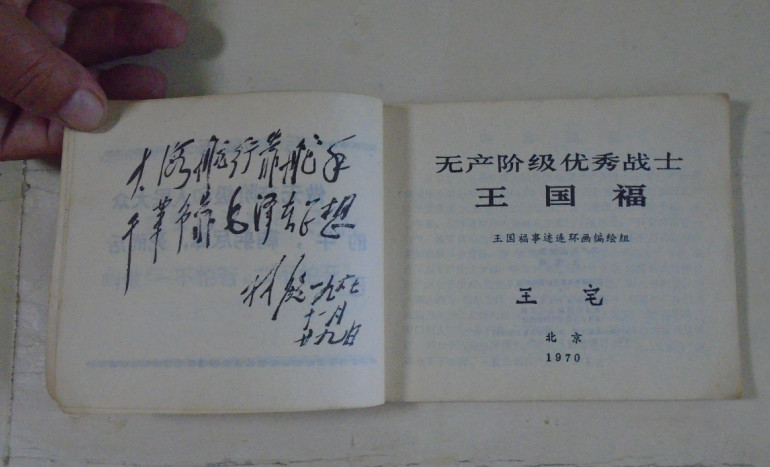 大海航行靠舵手
干革命靠毛泽东思想
林彪一九六七
十一月
廿九日
无产阶级优秀战士
王国福
王国福事迹连环画编绘组
王宅
北京
1970